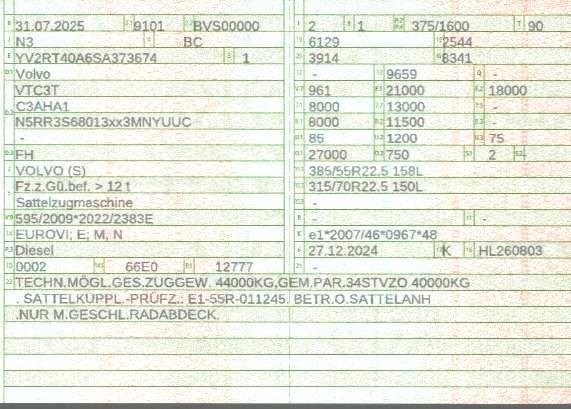 31.07.2025 9101 BVS00000
N3 BC
YV2RT40A6SA373674 1
Volvo
VTC3T
C3AHA1
N5RR3S68013xx3MNYUUC
-
FH
VOLVO (S)
Fz.z.Gü.bef. > 12 t
Sattelzugmaschine
595/2009*2022/2383E
EUROVI; E; M, N
Diesel
0002 66E0 12777
2 1 375/1600 90
6129 2544
3914 8341
- 9659 -
961 21000 18000
8000 13000 -
8000 11500 -
85 1200 75
27000 750 2 -
385/55R22.5 158L
315/70R22.5 150L
-
- -
e1*2007/46*0967*48
27.12.2024 K HL260803
-
TECHN.MÖGL.GES.ZUGGEW. 44000KG,GEM.PAR.34STVZO 40000KG
. SATTELKUPPL.-PRÜFZ.: E1-55R-011245. BETR.O.SATTELANH
.NUR M.GESCHL.RADABDECK.